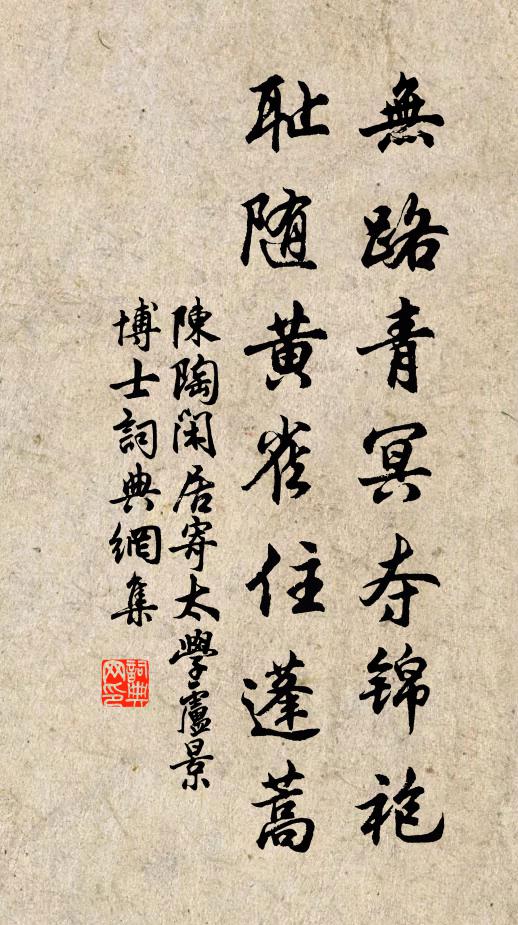 無路青冥夺锦袍
耻随黄雀住蓬蒿
陳陶閑居寄太學盧景
博士詞典網集
詞典网印